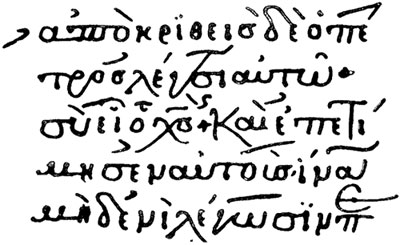 ἀποκρϊθεισ δὲ ὁ πέ
τροσ λέγει αυτῶ·
σὺ εἶ ὁ χ̅ς̅· Καὶ ἐπετί
μησεν αὐτοῖσ· ἵνα
μηδενὶ λέγωσϊν πε